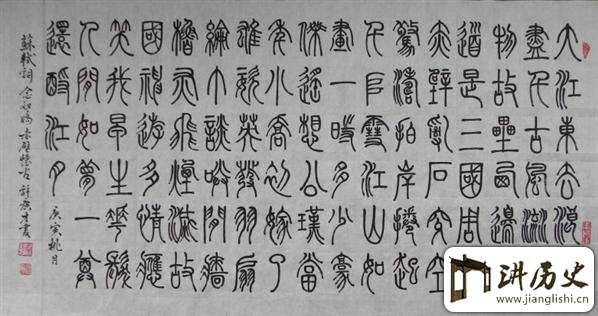 大江東去浪
盡千古風流
物故壘西邊
道是三國周
赤壁亂石穿空
驚濤拍岸捲起
千堆雪江山如
畫一時多少豪
傑遙想公瑾當
年小喬初嫁了
雄姿英發羽扇
綸巾談笑間檣
櫓灰飛煙滅故
國神遊多情應
笑我早生華髮
人間如夢一尊
還酹江月
庚寅桃月
蘇軾詞 念奴嬌 赤壁懷古
讲历史
www.jianglishi.cn